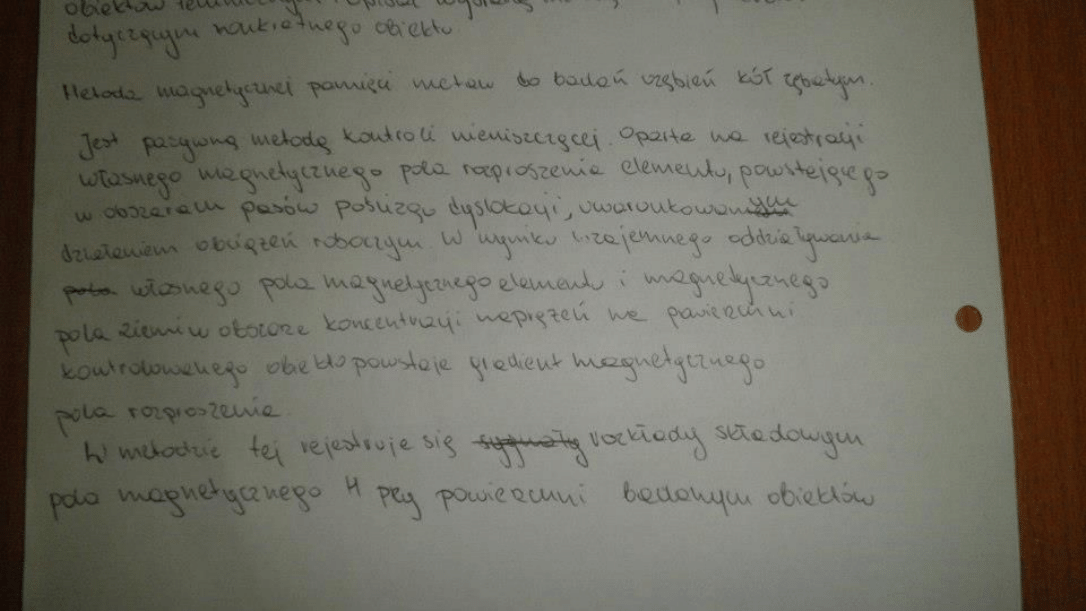 obiektów
dotyczącym konkretnego obiektu
Metoda magnetycznej pamięci metalu do badań uzębień kół zębatych.
Jest pasywną metodą kontroli nieniszczącej. Oparta na rejestracji
własnego magnetycznego pola rozproszenia elementu, powstającego
w obszarach pasów poślizgu dyslokacji, uwarunkowanym
działaniem obciążeń roboczych. W wyniku wzajemnego oddziaływania
pola własnego pola magnetycznego elementu i magnetycznego
pola ziemi w obszarze koncentracji naprężeń na powierzchni
kontrolowanego obiektu powstaje gradient magnetycznego
pola rozproszenia.
W metodzie tej rejestruje się sygnały rozkłady składowych
pola magnetycznego H przy powierzchni badanych obiektów